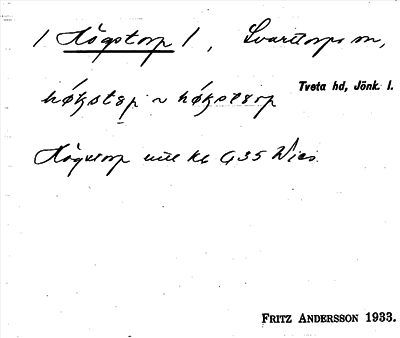 / Högstorp /, Svarttorps sn,
Tveta hd, Jönk. l.
hǿkstǝp ~ hǿkstorp
Högstorp utt kb G35 Wies.
FRITZ ANDERSSON 1933.